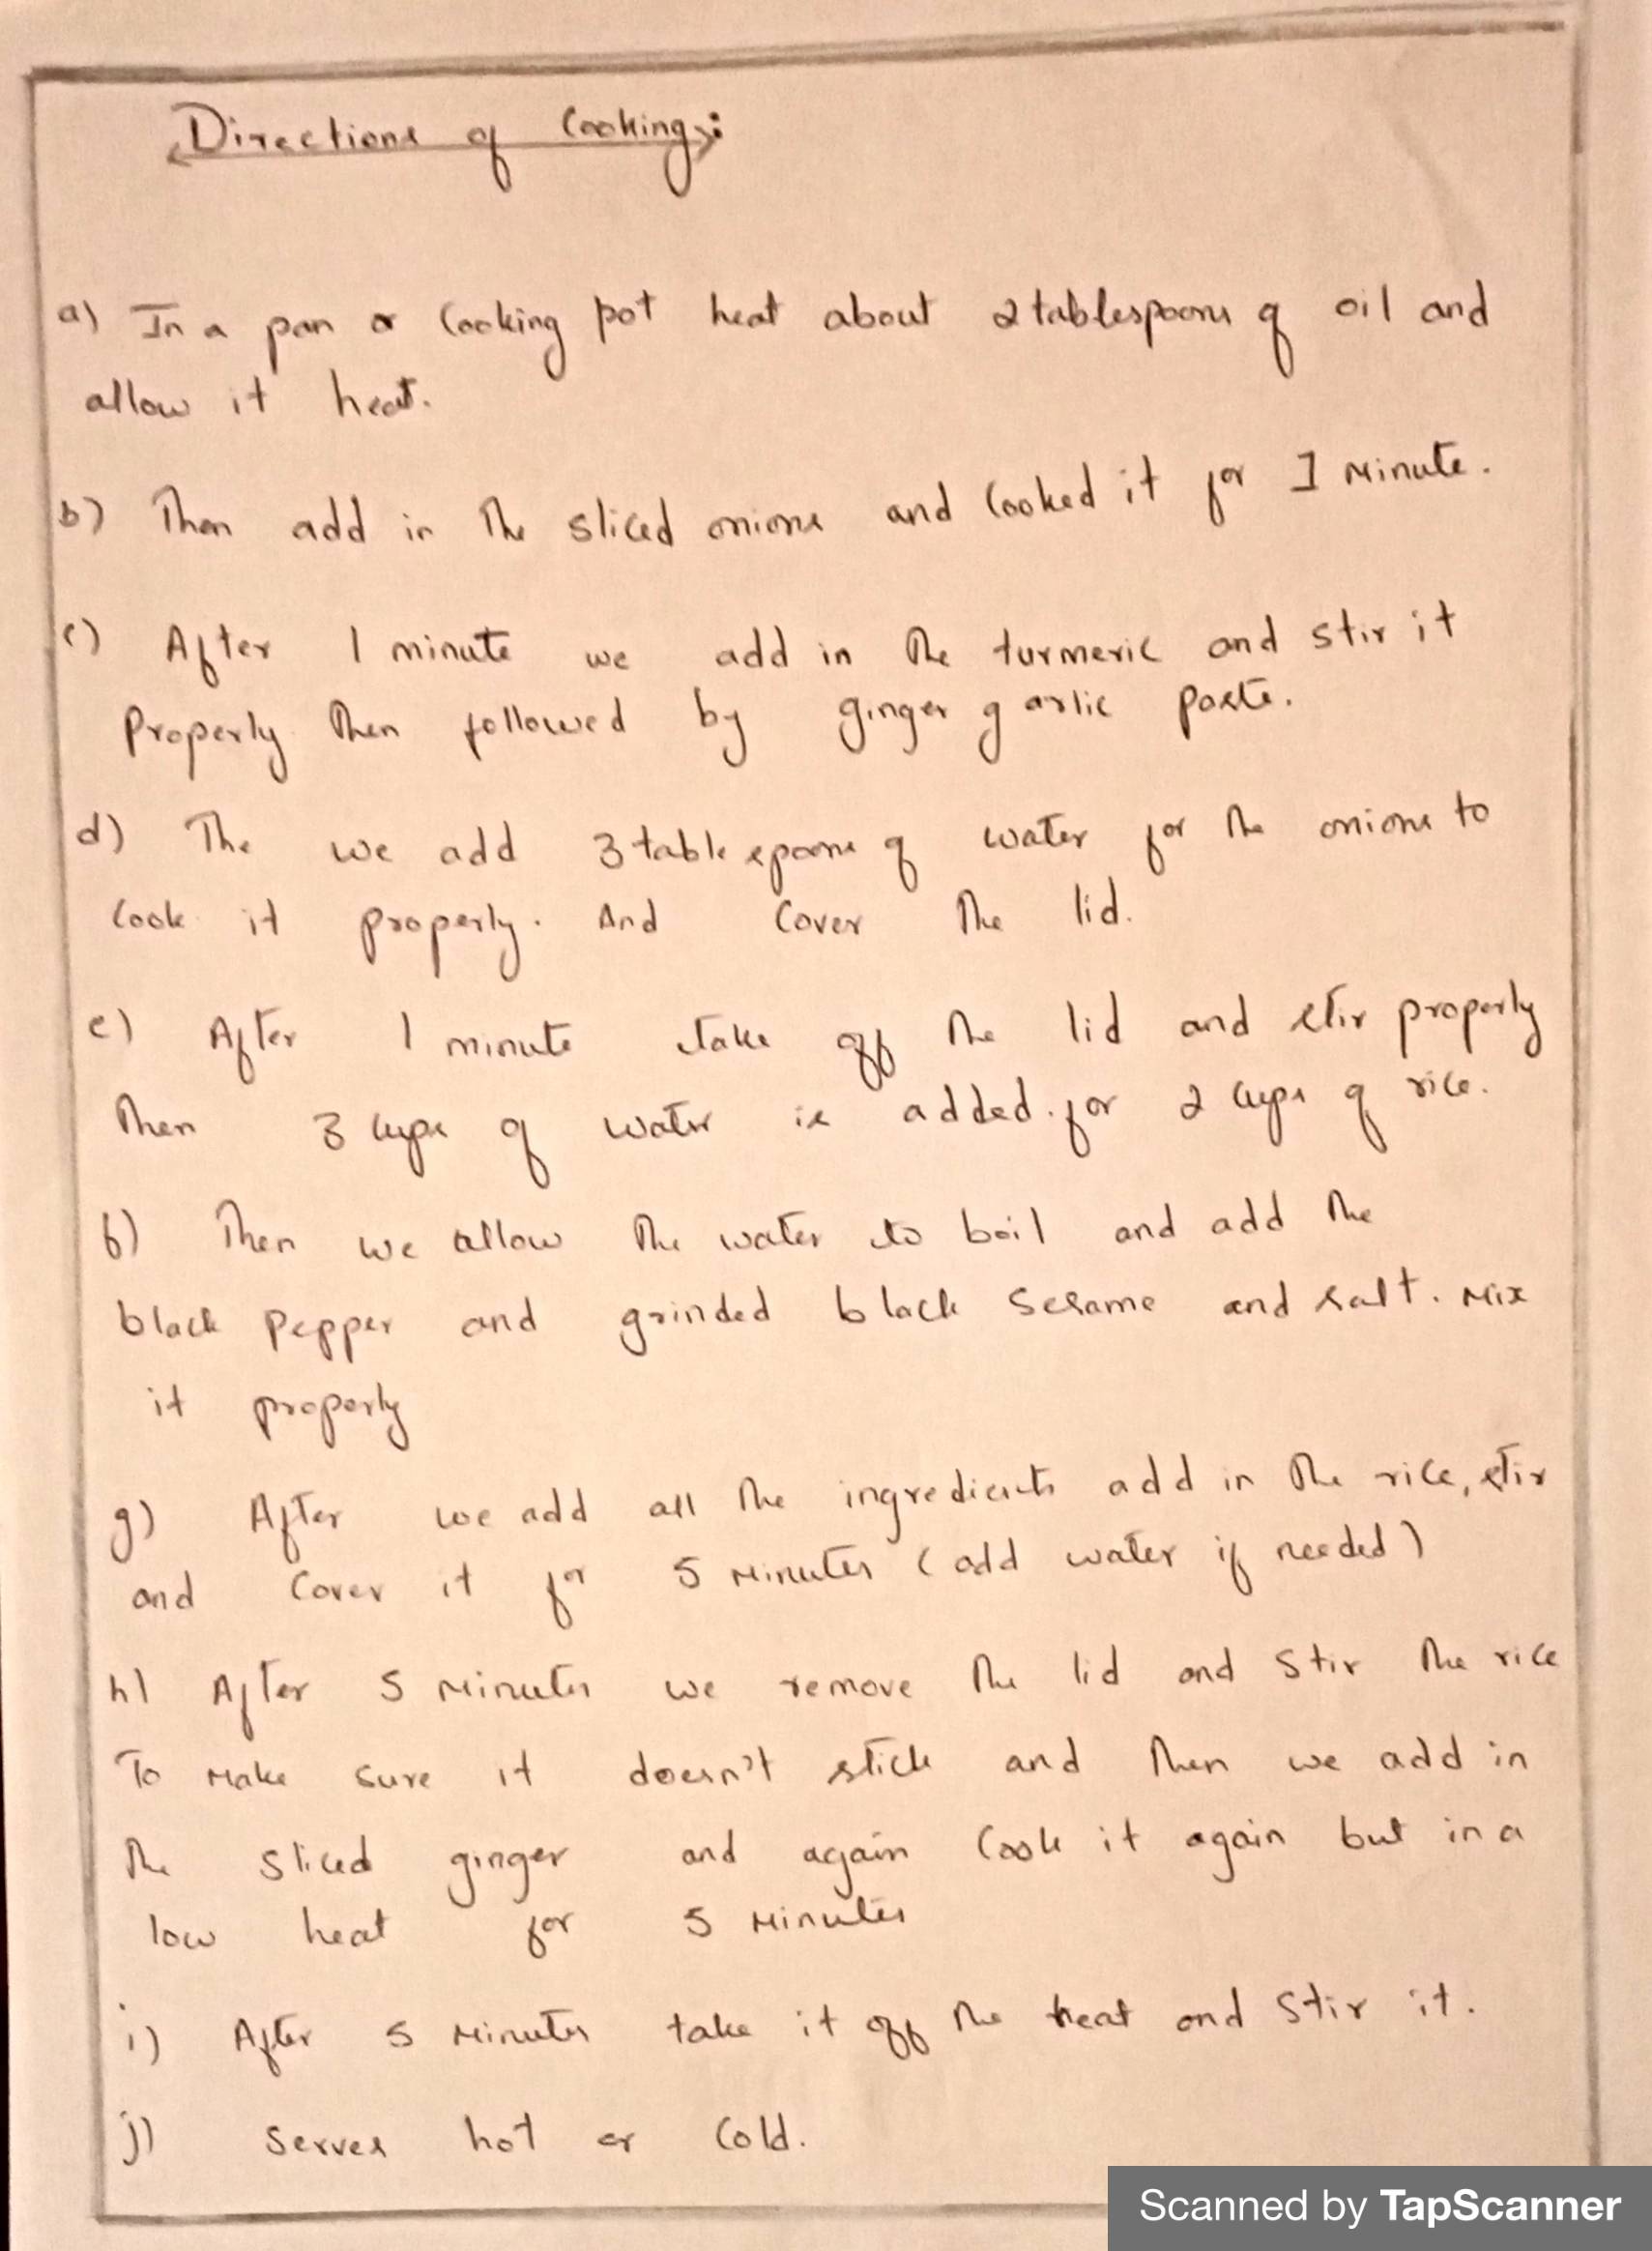 Directions of Cooking:
a) In a pan or Cooking pot heat about 2 tablespoons of oil and
allow it heat.
b) Then add in the sliced onions and Cooked it for 1 Minute.
c) After 1 minute we add in the turmeric and stir it
Properly then followed by ginger garlic paste.
d) The we add 3 table spoons of water for the onions to
Cook it properly. And Cover the lid.
e) After 1 minute take off the lid and stir properly
Then 3 Cups of water is added. for 2 Cups of rice.
f) Then we allow the water to boil and add the
black Pepper and grinded black Sesame and salt. Mix
it properly
g) After we add all the ingredients add in the rice, stir
and Cover it for 5 Minutes (add water if needed)
h) After 5 Minutes we remove the lid and Stir the rice
To Make sure it doesn't stick and then we add in
the sliced ginger and again Cook it again but in a
low heat for 5 Minutes
i) After 5 Minutes take it off the heat and Stir it.
j) Serves hot or Cold.
Scanned by TapScanner